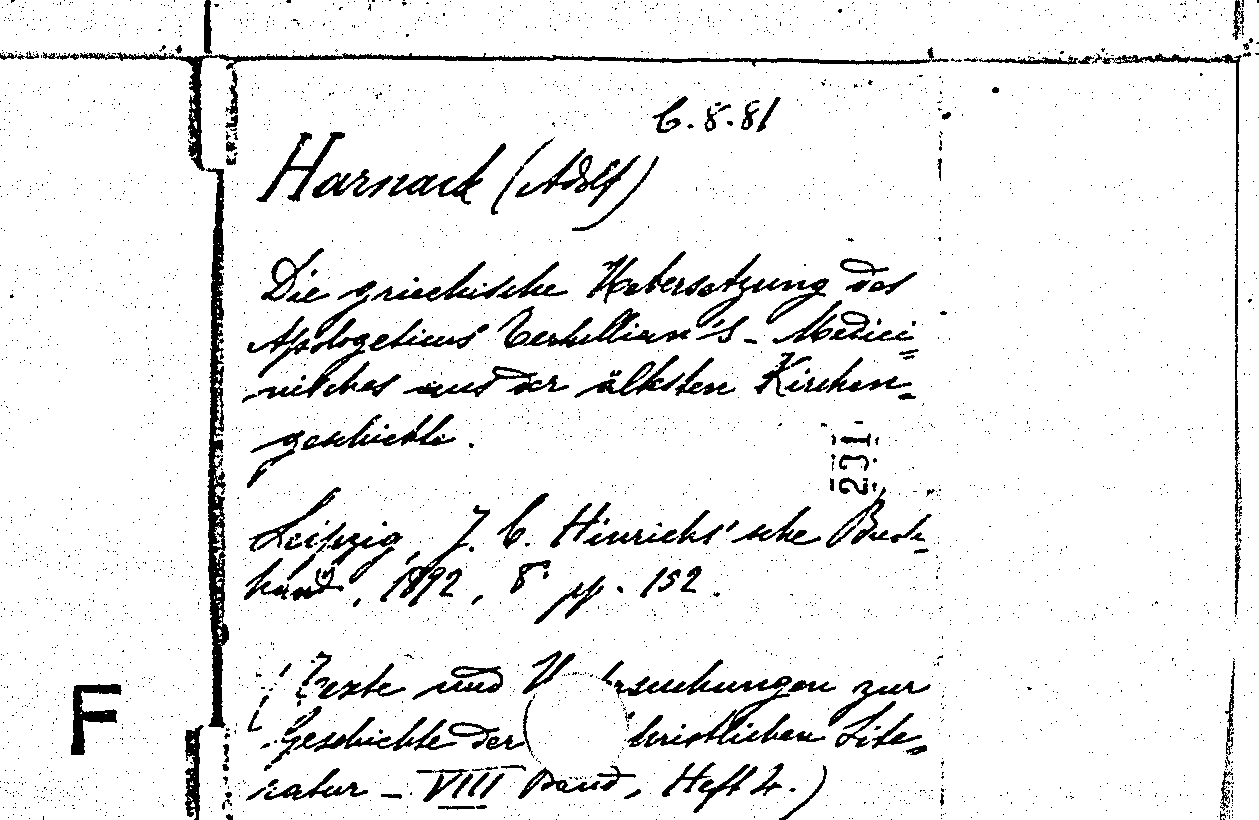 6.8.81
Harnack (Adolf)
Die griechische Uebersetzung des
Apologeticus Tertullian's - Medici=
nisches aus der ältesten Kirchen=
geschichte.
231
Leipzig, J. C. Hinrichs'sche Buch-
hand, 1892, 8° pp. 152.
(Texte und U rsuchungen zur
Geschichte der christlichen Lite=
ratur - VIII Band, Heft 4.)
F